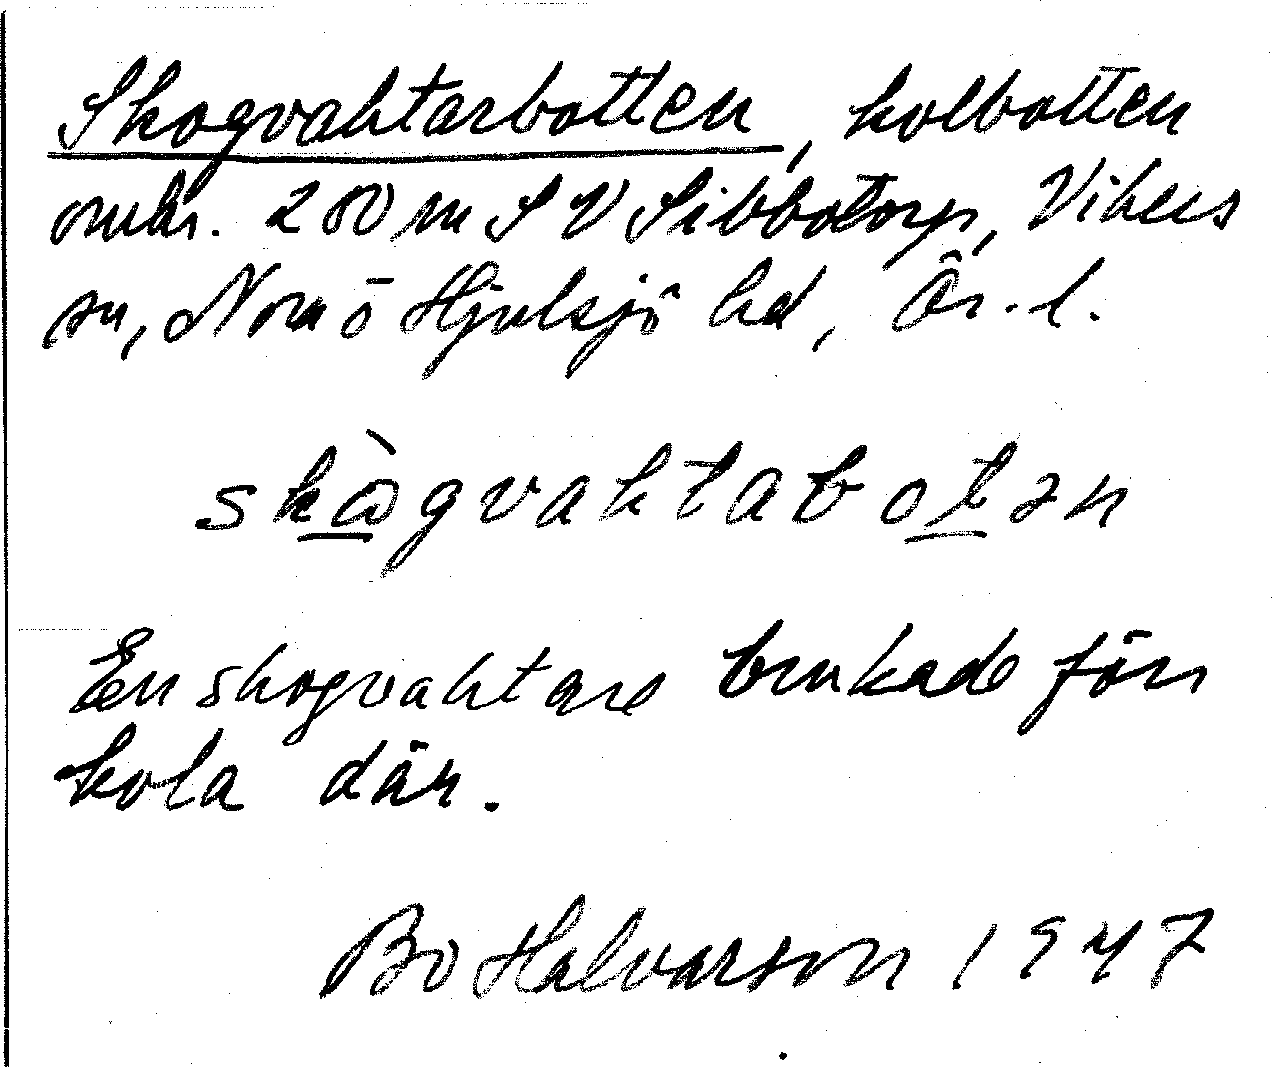 Skogvaktarbotten, kolbotten
omkr. 200 m S V Sibbotorp, Vikers
sn, Nora ö Hjulsjö hd, Ör. l.
skògvaktabotən
En skogvaktare brukade förr
kola där.
Bo Halvarson 1947